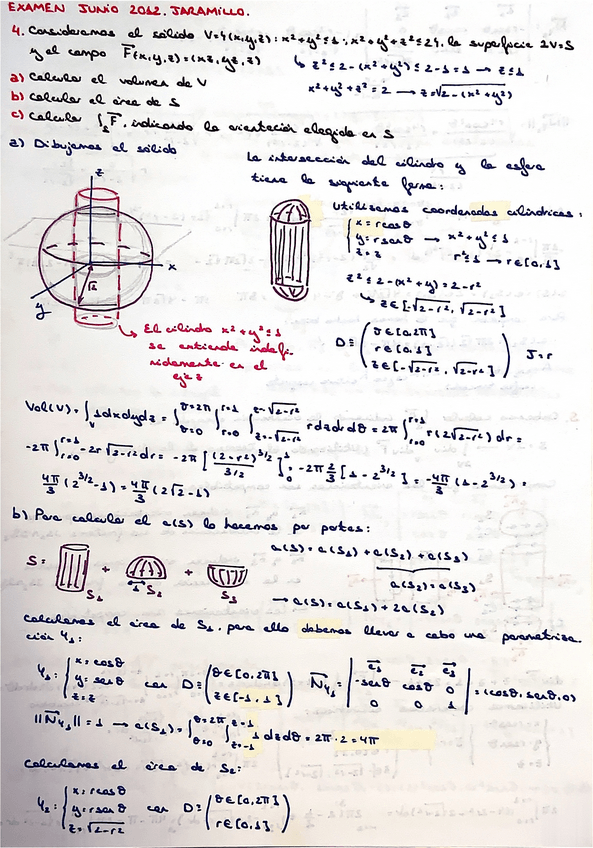 EXAMEN JUNIO 2012. JARAMILLO.
4. Consideramos el sólido V={(x,y,z): x²+y²≤1; x²+y²+z²≤2}, la superficie ∂V=S
y el campo F⃗(x,y,z)=(xz, yz, z)
↳ z²≤2-(x²+y²)≤2-1=1 → z≤1
x²+y²+z²=2 → z=√(2-(x²+y²))
a) Calcular el volumen de V
b) Calcular el área de S
c) Calcular ∫_S F⃗, indicando la orientación elegida en S
a) Dibujamos el sólido
La intersección del cilindro y la esfera
tiene la siguiente forma:
z
x
y
√2
↳ El cilindro x²+y²≤1
se entiende indefi-
nidamente en el
eje z
Utilizamos coordenadas cilíndricas:
{ x=rcosθ
y=rsenθ → x²+y²≤1
z=z r²≤1 → r∈[0,1]
z²≤2-(x²+y)=2-r²
↳ z∈[-√(2-r²), √(2-r²)]
D≡ ( θ∈[0,2π]
r∈[0,1]
z∈[-√(2-r²), √(2-r²)] ) J=r
Vol(V)=∫_V 1dxdydz=∫_{θ=0}^{θ=2π}∫_{r=0}^{r=1}∫_{z=-√(2-r²)}^{z=√(2-r²)} rdzdrdθ=2π∫_{r=0}^{r=1} r(2√(2-r²))dr=
-2π∫_{r=0}^{r=1} -2r√(2-r²)dr= -2π[(2-r²)^{3/2}/(3/2)]_0^1= -2π 2/3 [1-2^{3/2}]= -4π/3 (1-2^{3/2})=
4π/3 (2^{3/2}-1)=4π/3 (2√2-1)
b) Para calcular el a(S) lo hacemos por partes:
S= S₁ + S₂ + S₃
a(S)=a(S₁)+a(S₂)+a(S₃)
a(S₂)=a(S₃)
→ a(S)=a(S₁)+2a(S₂)
Calculamos el área de S₁, para ello debemos llevar a cabo una parametriza-
ción φ₁:
φ₁: { x=cosθ
y=senθ con D≡ ( θ∈[0,2π]
z=z z∈[-1,1] )
N⃗φ₁= | e⃗₁ e⃗₂ e⃗₃
-senθ cosθ 0
0 0 1 | =(cosθ, senθ, 0)
||N⃗φ₁||=1 → a(S₁)=∫_{θ=0}^{θ=2π}∫_{z=-1}^{z=1} 1dzdθ=2π·2=4π
Calculamos el área de S₂:
φ₂: { x=rcosθ
y=rsenθ con D≡ ( θ∈[0,2π]
z=√(2-r²) r∈[0,1] )